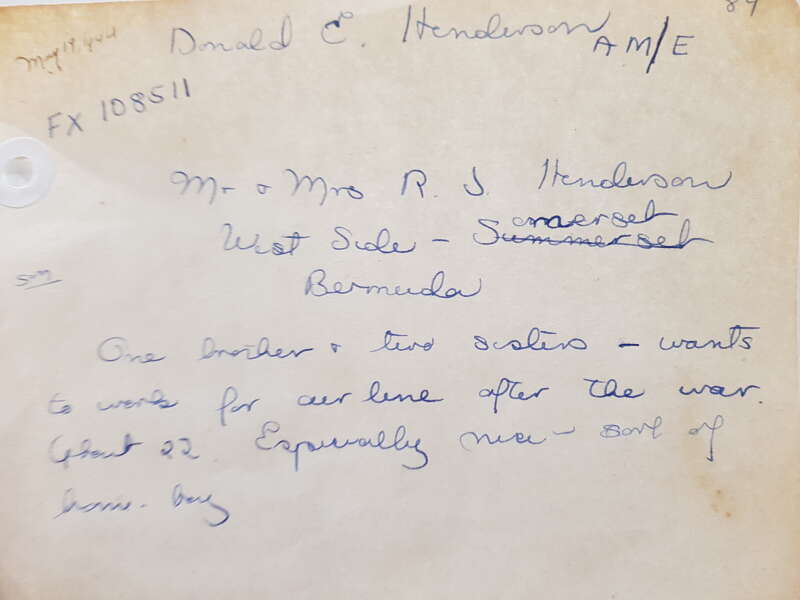 84
May 19, 44
Donald E. Henderson
A M/E
FX 108511
Mr & Mrs R. J. Henderson
omerset
West Side - Summerset
Bermuda
One brother & two sisters - wants
to work for air line after the war.
About 22. Especially nice - sort of
home-boy